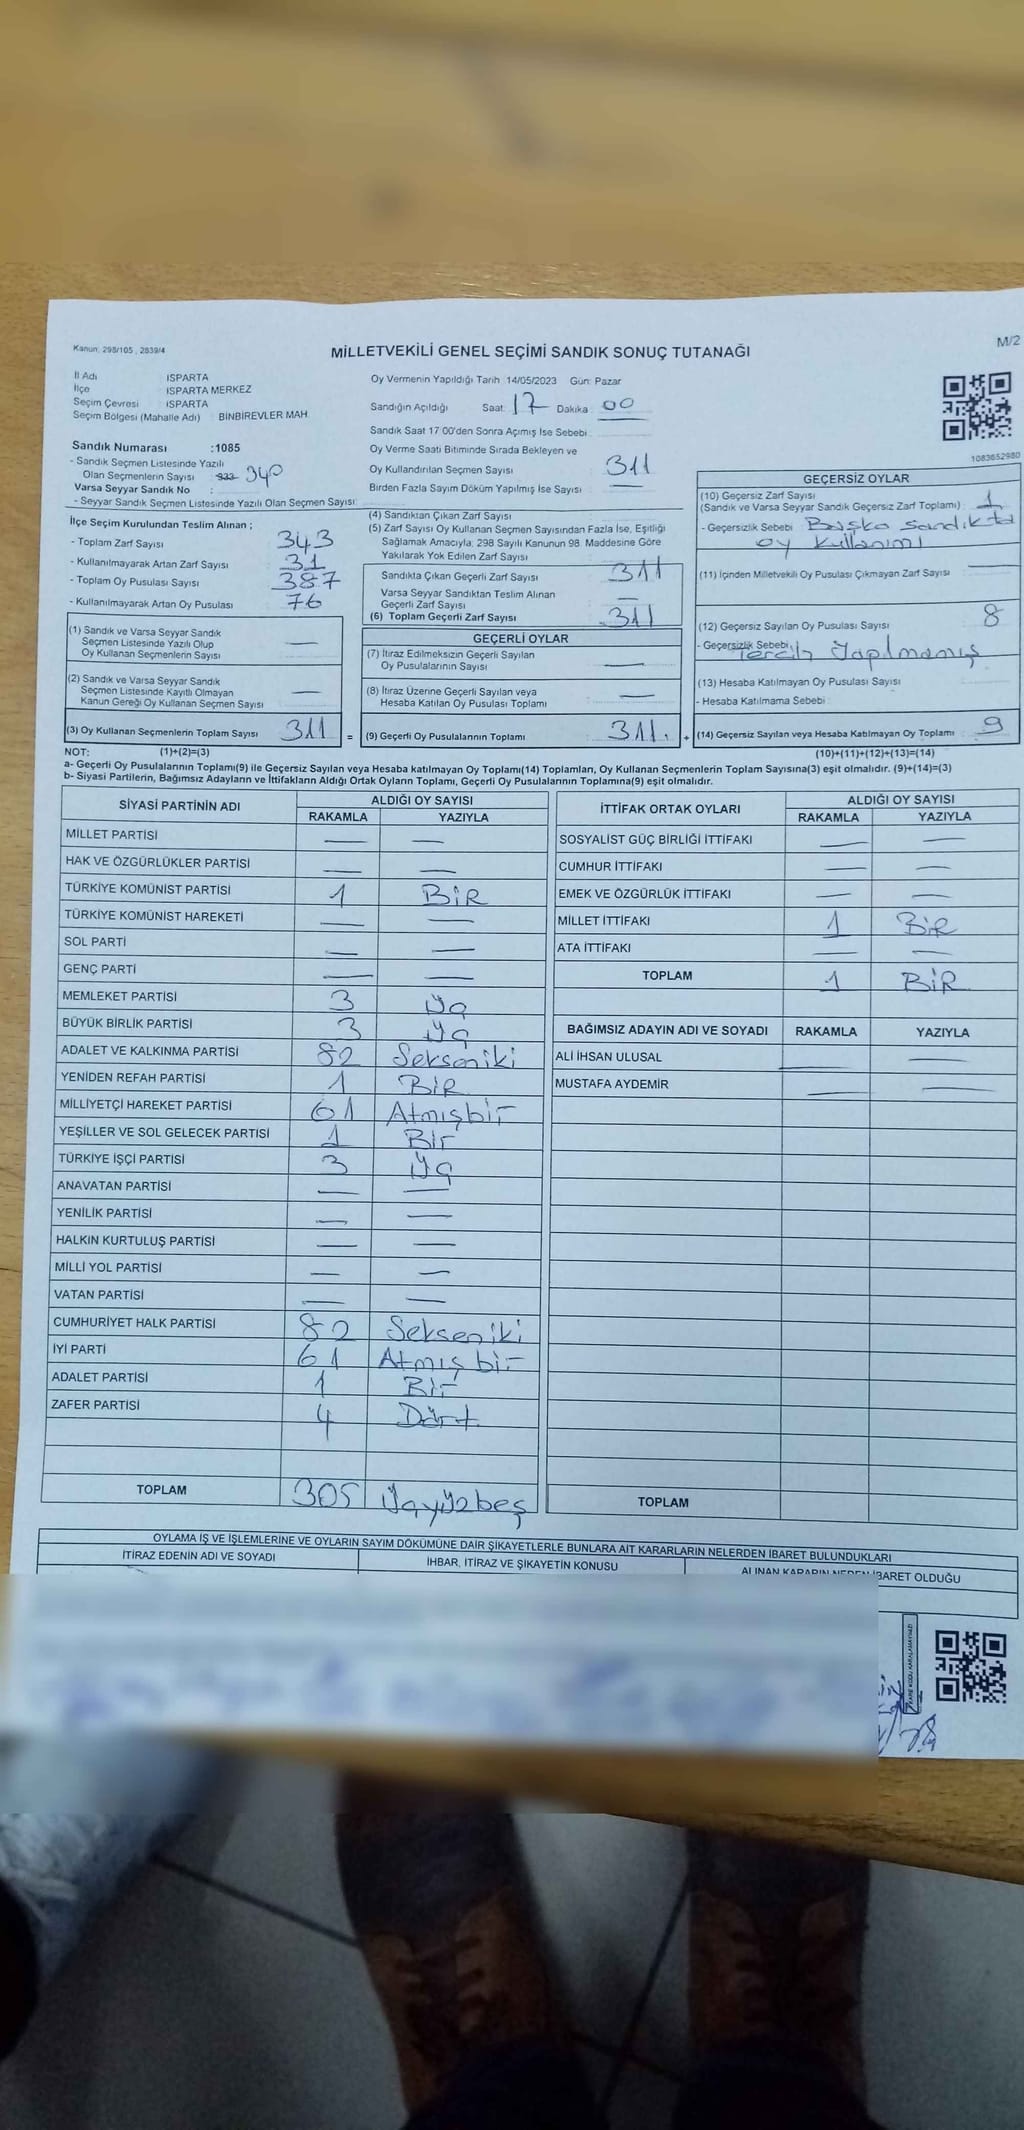 Kanun: 298/105 , 2839/4
MİLLETVEKİLİ GENEL SEÇİMİ SANDIK SONUÇ TUTANAĞI
M/2
İl Adı ISPARTA
İlçe ISPARTA MERKEZ
Seçim Çevresi ISPARTA
Seçim Bölgesi (Mahalle Adı) : BİNBİREVLER MAH.
Sandık Numarası :1085
- Sandık Seçmen Listesinde Yazılı
Olan Seçmenlerin Sayısı 340
Varsa Seyyar Sandık No :
- Seyyar Sandık Seçmen Listesinde Yazılı Olan Seçmen Sayısı:
Oy Vermenin Yapıldığı Tarih 14/05/2023 Gün: Pazar
Sandığın Açıldığı Saat: 17 Dakika : 00
Sandık Saat 17:00'den Sonra Açımış İse Sebebi :
Oy Verme Saati Bitiminde Sırada Bekleyen ve
Oy Kullandırılan Seçmen Sayısı : 311
Birden Fazla Sayım Döküm Yapılmış İse Sayısı : —
1083652980
İlçe Seçim Kurulundan Teslim Alınan ;
- Toplam Zarf Sayısı 343
- Kullanılmayarak Artan Zarf Sayısı : 31
- Toplam Oy Pusulası Sayısı 387
- Kullanılmayarak Artan Oy Pusulası : 76
(1) Sandık ve Varsa Seyyar Sandık
Seçmen Listesinde Yazılı Olup
Oy Kullanan Seçmenlerin Sayısı —
(2) Sandık ve Varsa Seyyar Sandık
Seçmen Listesinde Kayıtlı Olmayan
Kanun Gereği Oy Kullanan Seçmen Sayısı —
(3) Oy Kullanan Seçmenlerin Toplam Sayısı 311 =
(4) Sandıktan Çıkan Zarf Sayısı
(5) Zarf Sayısı Oy Kullanan Seçmen Sayısından Fazla İse, Eşitliği
Sağlamak Amacıyla; 298 Sayılı Kanunun 98. Maddesine Göre
Yakılarak Yok Edilen Zarf Sayısı
Sandıkta Çıkan Geçerli Zarf Sayısı 311
Varsa Seyyar Sandıktan Teslim Alınan
Geçerli Zarf Sayısı —
(6) Toplam Geçerli Zarf Sayısı 311
GEÇERLİ OYLAR
(7) İtiraz Edilmeksizin Geçerli Sayılan
Oy Pusulalarının Sayısı —
(8) İtiraz Üzerine Geçerli Sayılan veya
Hesaba Katılan Oy Pusulası Toplamı —
(9) Geçerli Oy Pusulalarının Toplamı 311. +
GEÇERSİZ OYLAR
(10) Geçersiz Zarf Sayısı
(Sandık ve Varsa Seyyar Sandık Geçersiz Zarf Toplamı) : 1
- Geçersizlik Sebebi : Başka sandıkta
oy kullanımı
(11) İçinden Milletvekili Oy Pusulası Çıkmayan Zarf Sayısı —
(12) Geçersiz Sayılan Oy Pusulası Sayısı 8
- Geçersizlik Sebebi : Tercih Yapılmamış
(13) Hesaba Katılmayan Oy Pusulası Sayısı
- Hesaba Katılmama Sebebi :
(14) Geçersiz Sayılan veya Hesaba Katılmayan Oy Toplamı : 9
NOT: (1)+(2)=(3) (10)+(11)+(12)+(13)=(14)
a- Geçerli Oy Pusulalarının Toplamı(9) ile Geçersiz Sayılan veya Hesaba katılmayan Oy Toplamı(14) Toplamları, Oy Kullanan Seçmenlerin Toplam Sayısına(3) eşit olmalıdır. (9)+(14)=(3)
b- Siyasi Partilerin, Bağımsız Adayların ve İttifakların Aldığı Ortak Oyların Toplamı, Geçerli Oy Pusulalarının Toplamına(9) eşit olmalıdır.
SİYASİ PARTİNİN ADI ALDIĞI OY SAYISI
RAKAMLA YAZIYLA
MİLLET PARTİSİ — —
HAK VE ÖZGÜRLÜKLER PARTİSİ — —
TÜRKİYE KOMÜNİST PARTİSİ 1 BİR
TÜRKİYE KOMÜNİST HAREKETİ — —
SOL PARTİ — —
GENÇ PARTİ — —
MEMLEKET PARTİSİ 3 Üç
BÜYÜK BİRLİK PARTİSİ 3 Üç
ADALET VE KALKINMA PARTİSİ 82 Sekseniki
YENİDEN REFAH PARTİSİ 1 BİR
MİLLİYETÇİ HAREKET PARTİSİ 61 Atmışbir
YEŞİLLER VE SOL GELECEK PARTİSİ 1 Bir
TÜRKİYE İŞÇİ PARTİSİ 3 Üç
ANAVATAN PARTİSİ — —
YENİLİK PARTİSİ — —
HALKIN KURTULUŞ PARTİSİ — —
MİLLİ YOL PARTİSİ — —
VATAN PARTİSİ — —
CUMHURİYET HALK PARTİSİ 82 Sekseniki
İYİ PARTİ 61 Atmış bir
ADALET PARTİSİ 1 Bir
ZAFER PARTİSİ 4 Dört
TOPLAM 305 Üçyüzbeş
İTTİFAK ORTAK OYLARI ALDIĞI OY SAYISI
RAKAMLA YAZIYLA
SOSYALİST GÜÇ BİRLİĞİ İTTİFAKI — —
CUMHUR İTTİFAKI — —
EMEK VE ÖZGÜRLÜK İTTİFAKI — —
MİLLET İTTİFAKI 1 BİR
ATA İTTİFAKI — —
TOPLAM 1 BİR
BAĞIMSIZ ADAYIN ADI VE SOYADI RAKAMLA YAZIYLA
ALİ İHSAN ULUSAL — —
MUSTAFA AYDEMİR — —
TOPLAM
OYLAMA İŞ VE İŞLEMLERİNE VE OYLARIN SAYIM DÖKÜMÜNE DAİR ŞİKAYETLERLE BUNLARA AİT KARARLARIN NELERDEN İBARET BULUNDUKLARI
İTİRAZ EDENİN ADI VE SOYADI İHBAR, İTİRAZ VE ŞİKAYETİN KONUSU ALINAN KARARIN NEDEN İBARET OLDUĞU